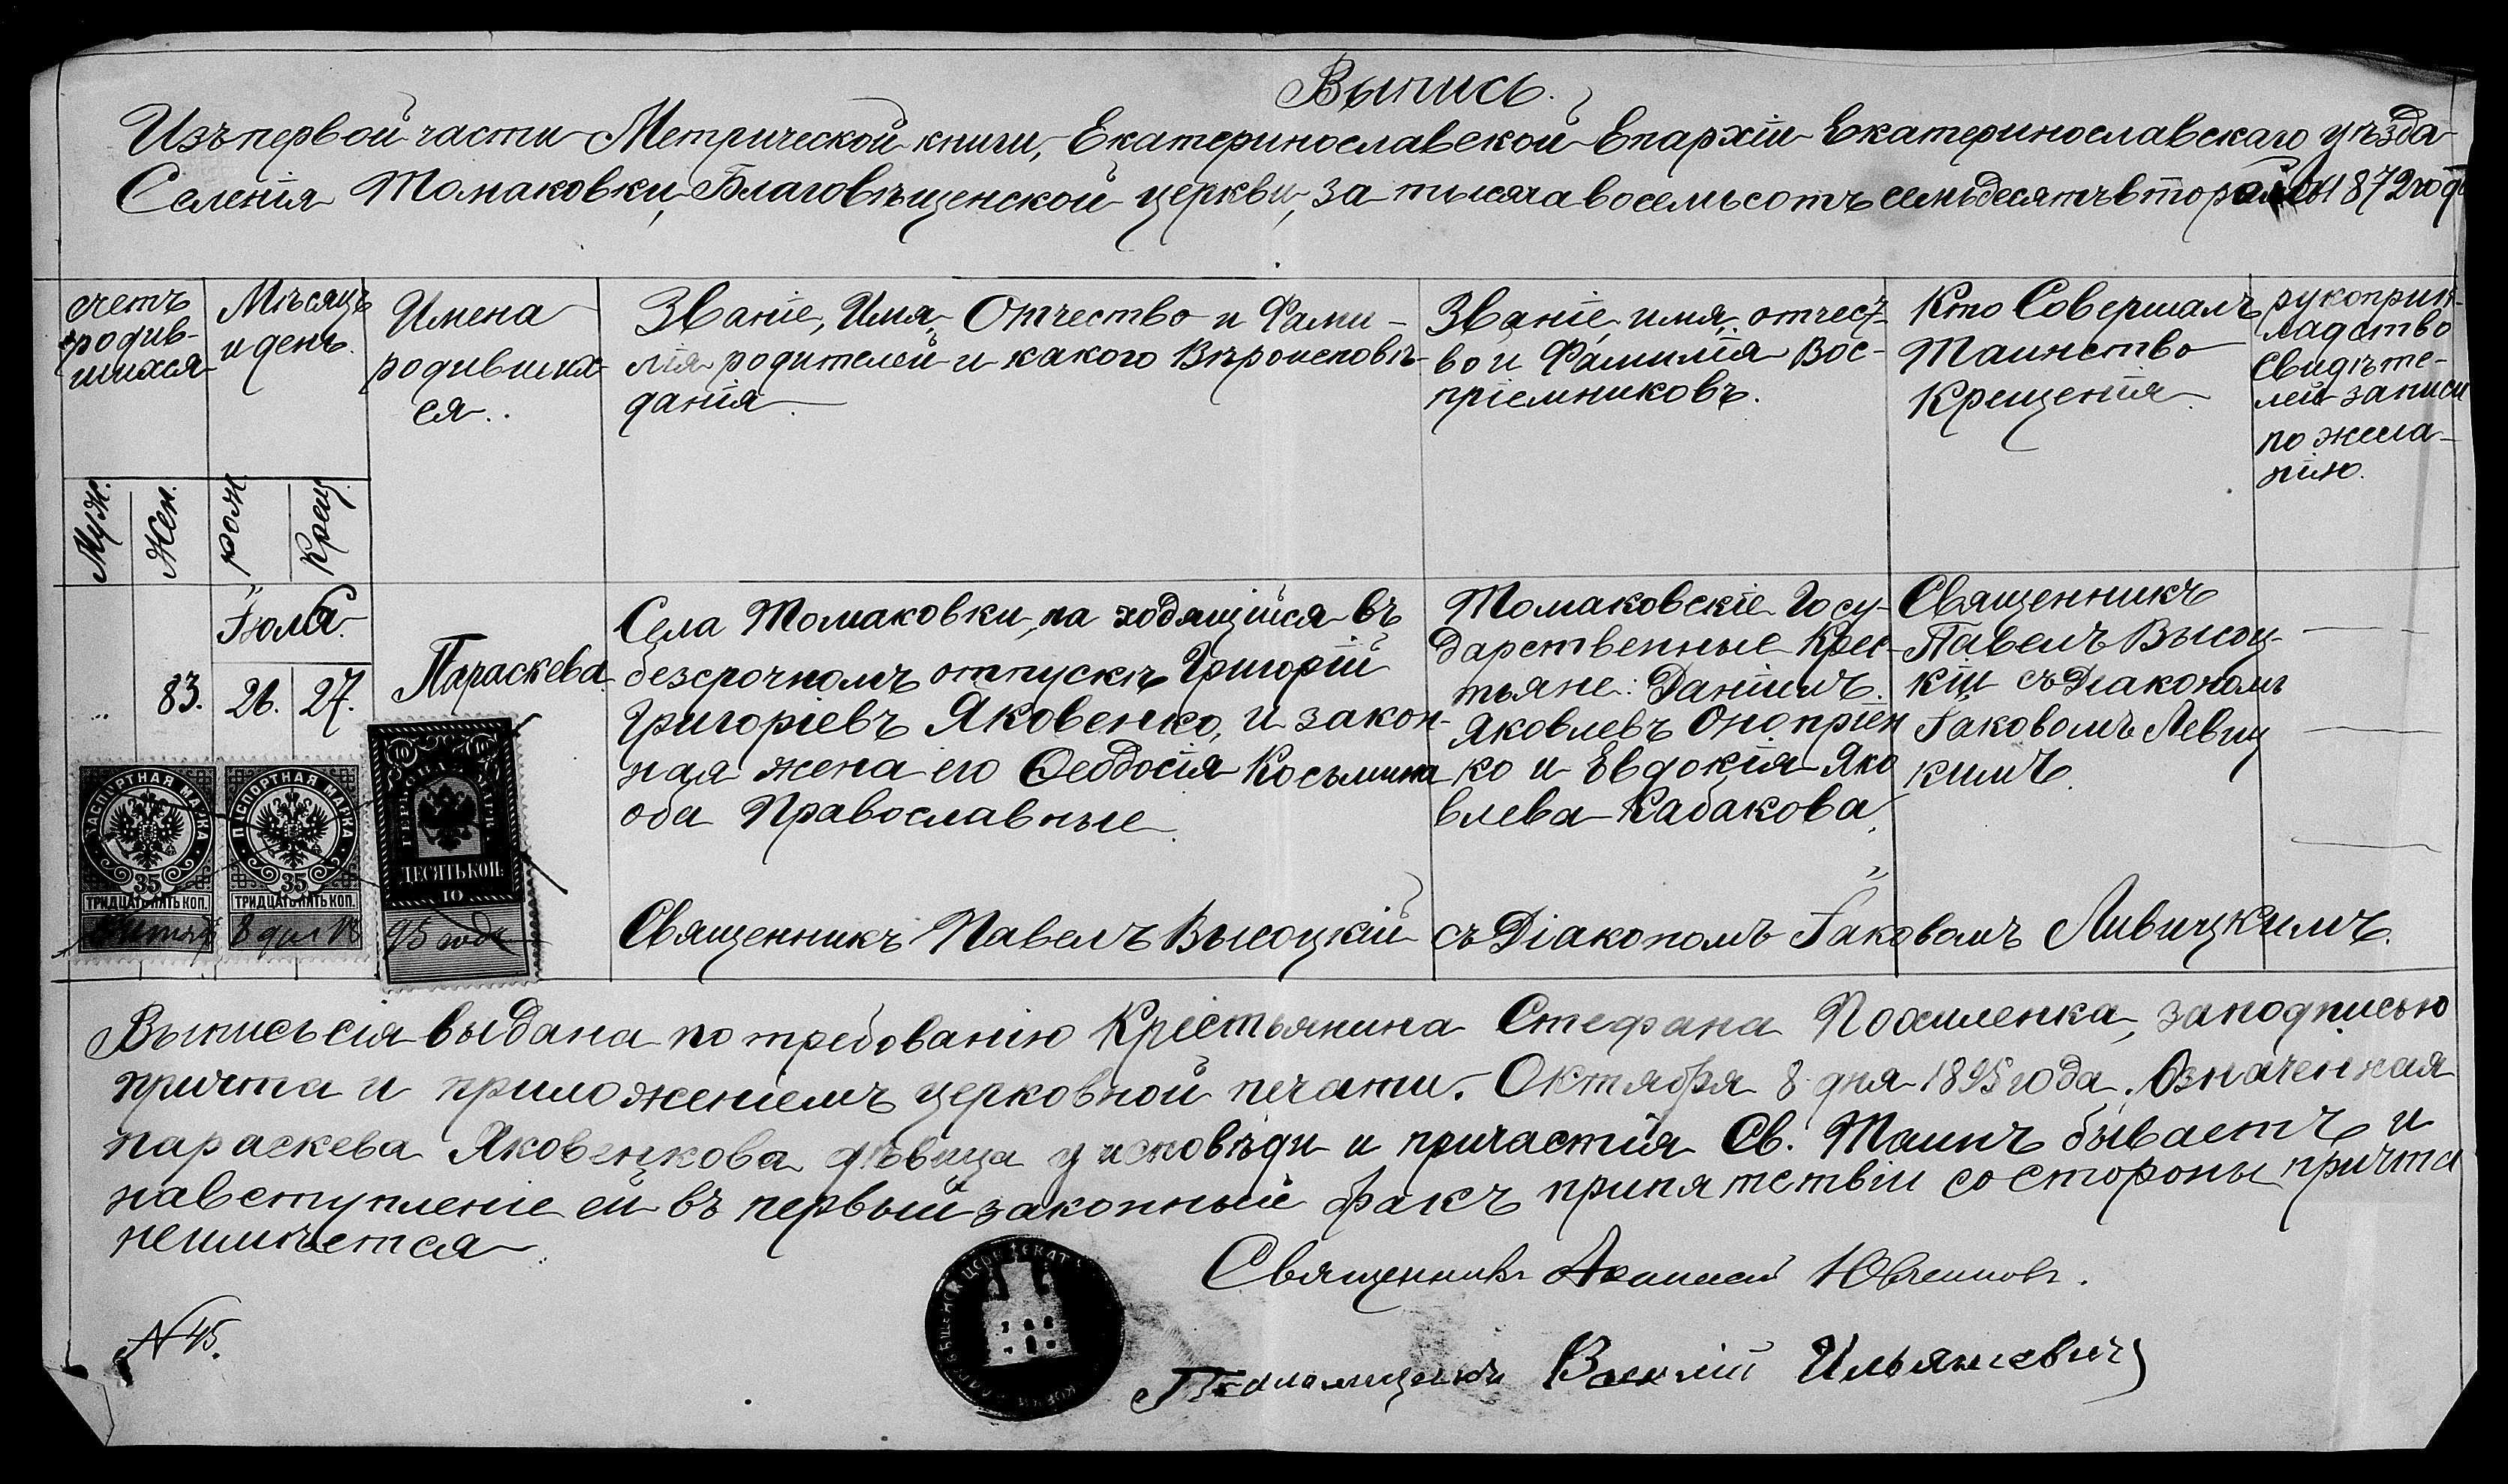 Выпись.
Изъ первой части Метрической книги, Екатеринославской Епархіи Екатеринославскаго уѣзда
Селенія Томаковки, Благовѣщенской церкви, за тысяча восемьсотъ семьдесятъ второй 1872 годъ
счетъ
родив-
шихся
Мѣсяцъ
и день.
Имена
родивших
ся.
Званіе, Имя, Отчество и Фами-
лія родителей и какого Вѣроисповѣ-
данія
Званіе, имя, отчест-
во и Фамилія Вос-
пріемниковъ.
Кто Совершалъ
Таинство
Крещенія
рукоприк-
ладство
Свидѣте-
лей записи
по жела-
нію.
Муж.
Жен.
рожд.
Крещ.
Іюля.
83.
26.
27.
Параскева
Села Томаковки, на ходящійся въ
безсрочномъ отпускѣ Григорій
Григоріевъ Яковенко, и закон-
ная жена его Ѳеодосія Косьмина
оба Православные
Томаковскіе Госу-
дарственные Крес-
тьяне: Даніилъ
Яковлевъ Оноприен
ко и Евдокія Яко
влева Кабакова
Священникъ
Павелъ Высоц-
кій съ Діакономъ
Іаковомъ Левиц
кимъ
ПАСПОРТНАЯ МАРКА
35
ТРИДЦАТЬ ПЯТЬ КОП.
ПАСПОРТНАЯ МАРКА
35
ТРИДЦАТЬ ПЯТЬ КОП.
8 дня 18
10
ГЕРБОВАЯ МАРК.
ДЕСЯТЬ КОП:
10
95 года
Священникъ Павелъ Высоцкій съ Діакономъ Іаковомъ Ливицкимъ.
Выпись сія выдана по требованію Крестьянина Стефана Похиленка, за подписью
причта и приложеніемъ церковной печати. Октября 8 дня 1895 года. Означенная
параскева Яковенкова дѣвица у исповѣди и причастія Св. Таинъ бываетъ и
на вступленіе ей въ первый законный бракъ припятствіи со стороны причта
неимѣется
Священникъ
№ 45.
Псаломщикъ Василій Ильяшевичъ